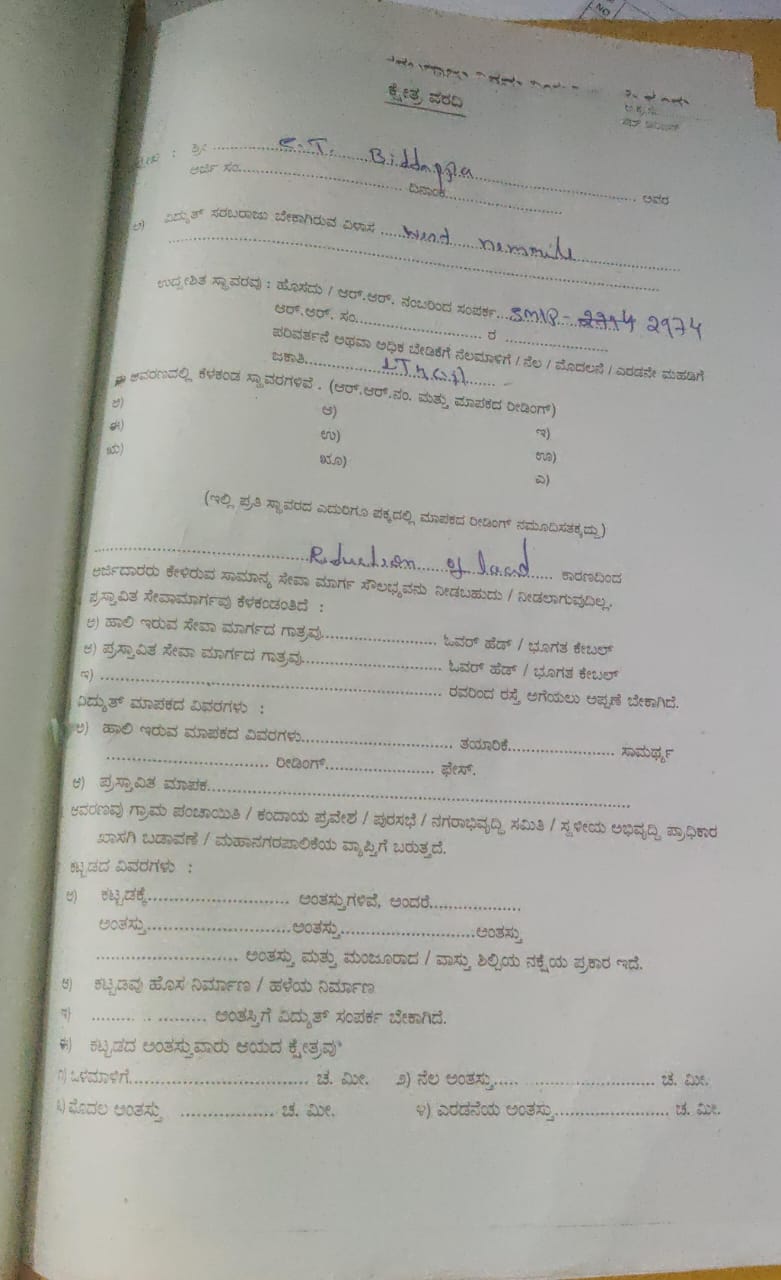 NO
ಕ್ಷೇತ್ರ ವರದಿ
: ಶ್ರೀ ........ Biddappa ........ ಅವರ
ಅರ್ಜಿ ಸಂ........ ದಿನಾಂಕ........
ಅ) ವಿದ್ಯುತ್ ಸರಬರಾಜು ಬೇಕಾಗಿರುವ ವಿಳಾಸ ........ West Nemmale ........
ಉದ್ದೇಶಿತ ಸ್ಥಾವರವು : ಹೊಸದು / ಆರ್.ಆರ್. ನಂಬರಿಂದ ಸಂಪರ್ಕ... SMIP- 2974
ಆರ್.ಆರ್. ಸಂ........ ರ ........
ಪರಿವರ್ತನೆ ಅಥವಾ ಅಧಿಕ ಬೇಡಿಕೆಗೆ ನೆಲಮಾಳಿಗೆ / ನೆಲ / ಮೊದಲನೆ / ಎರಡನೇ ಮಹಡಿಗೆ
ಜಕಾತಿ........
ಈ ಆವರಣದಲ್ಲಿ ಕೆಳಕಂಡ ಸ್ಥಾವರಗಳಿವೆ . (ಆರ್.ಆರ್.ನಂ. ಮತ್ತು ಮಾಪಕದ ರೀಡಿಂಗ್)
ಅ) ಆ) ಇ)
ಈ) ಉ) ಊ)
ಋ) ೠ) ಎ)
(ಇಲ್ಲಿ ಪ್ರತಿ ಸ್ಥಾವರದ ಎದುರಿಗೂ ಪಕ್ಕದಲ್ಲಿ ಮಾಪಕದ ರೀಡಿಂಗ್ ನಮೂದಿಸತಕ್ಕದ್ದು)
........ Reduction of load ........ ಕಾರಣದಿಂದ
ಅರ್ಜಿದಾರರು ಕೇಳಿರುವ ಸಾಮಾನ್ಯ ಸೇವಾ ಮಾರ್ಗ ಸೌಲಭ್ಯವನ್ನು ನೀಡಬಹುದು / ನೀಡಲಾಗುವುದಿಲ್ಲ.
ಪ್ರಸ್ತಾವಿತ ಸೇವಾಮಾರ್ಗವು ಕೆಳಕಂಡಂತಿದೆ :
ಅ) ಹಾಲಿ ಇರುವ ಸೇವಾ ಮಾರ್ಗದ ಗಾತ್ರವು........ ಓವರ್ ಹೆಡ್ / ಭೂಗತ ಕೇಬಲ್
ಆ) ಪ್ರಸ್ತಾವಿತ ಸೇವಾ ಮಾರ್ಗದ ಗಾತ್ರವು........ ಓವರ್ ಹೆಡ್ / ಭೂಗತ ಕೇಬಲ್
ಇ) ........ ರವರಿಂದ ರಸ್ತೆ ಅಗೆಯಲು ಅಪ್ಪಣೆ ಬೇಕಾಗಿದೆ.
ವಿದ್ಯುತ್ ಮಾಪಕದ ವಿವರಗಳು :
ಅ) ಹಾಲಿ ಇರುವ ಮಾಪಕದ ವಿವರಗಳು........ ತಯಾರಿಕೆ........ ಸಾಮರ್ಥ್ಯ
........ ರೀಡಿಂಗ್........ ಫೇಸ್.
ಆ) ಪ್ರಸ್ತಾವಿತ ಮಾಪಕ........
ಆವರಣವು ಗ್ರಾಮ ಪಂಚಾಯಿತಿ / ಕಂದಾಯ ಪ್ರವೇಶ / ಪುರಸಭೆ / ನಗರಾಭಿವೃದ್ಧಿ ಸಮಿತಿ / ಸ್ಥಳೀಯ ಅಭಿವೃದ್ಧಿ ಪ್ರಾಧಿಕಾರ
ಖಾಸಗಿ ಬಡಾವಣೆ / ಮಹಾನಗರಪಾಲಿಕೆಯ ವ್ಯಾಪ್ತಿಗೆ ಬರುತ್ತದೆ.
ಕಟ್ಟಡದ ವಿವರಗಳು :
ಅ) ಕಟ್ಟಡಕ್ಕೆ........ ಅಂತಸ್ತುಗಳಿವೆ, ಅಂದರೆ........
ಅಂತಸ್ತು........ಅಂತಸ್ತು........ಅಂತಸ್ತು
........ ಅಂತಸ್ತು ಮತ್ತು ಮಂಜೂರಾದ / ವಾಸ್ತು ಶಿಲ್ಪಿಯ ನಕ್ಷೆಯ ಪ್ರಕಾರ ಇದೆ.
ಆ) ಕಟ್ಟಡವು ಹೊಸ ನಿರ್ಮಾಣ / ಹಳೆಯ ನಿರ್ಮಾಣ
ಇ) ........ ಅಂತಸ್ತಿಗೆ ವಿದ್ಯುತ್ ಸಂಪರ್ಕ ಬೇಕಾಗಿದೆ.
ಈ) ಕಟ್ಟಡದ ಅಂತಸ್ತುವಾರು ಆಯದ ಕ್ಷೇತ್ರವು
೧) ಒಳಮಾಳಿಗೆ........ ಚ. ಮೀ. ೨) ನೆಲ ಅಂತಸ್ತು........ ಚ. ಮೀ.
೩) ಮೊದಲ ಅಂತಸ್ತು ........ ಚ. ಮೀ. ೪) ಎರಡನೆಯ ಅಂತಸ್ತು........ ಚ. ಮೀ.